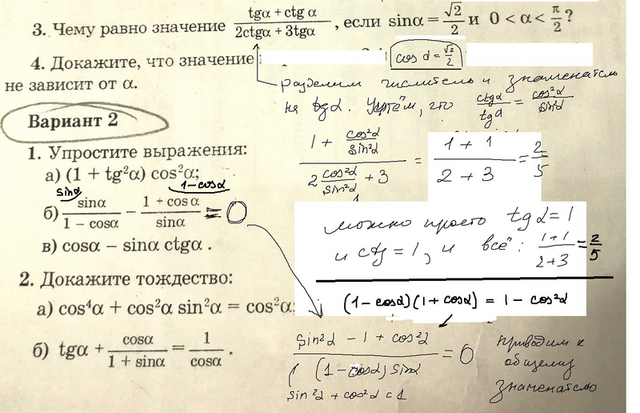 3. Чему равно значение (tgα + ctg α)/(2ctgα + 3tgα), если sinα = √2/2 и 0 < α < π/2?
4. Докажите, что значение
cos α = √2/2
не зависит от α.
разделим числитель и знаменатель
на tgα. Учтём, что ctgα/tgα = cos²α/sin²α
Вариант 2
(1 + cos²α/sin²α)/(2 cos²α/sin²α + 3) = (1 + 1)/(2 + 3) = 2/5
1. Упростите выражения:
а) (1 + tg²α) cos²α;
sinα 1-cosα
б) sinα/(1 − cosα) − (1 + cosα)/sinα = 0
в) cosα − sinα ctgα .
можно просто tgα = 1
и ctg = 1, и всё: (1+1)/(2+3) = 2/5
2. Докажите тождество:
(1-cosα)(1+cosα) = 1 - cos²α
а) cos⁴α + cos²α sin²α = cos²α;
б) tgα + cosα/(1 + sinα) = 1/cosα .
(sin²α - 1 + cos²α)/((1-cosα) sinα) = 0
sin²α + cos²α = 1
приводим к
общему
знаменателю